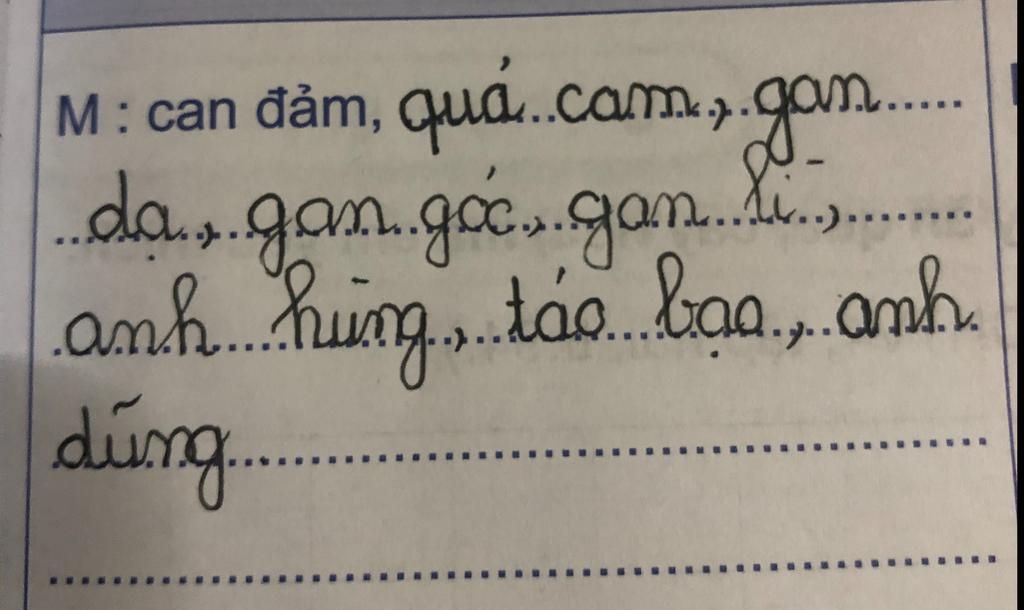 M : can đảm, quả cam, gan
dạ, gan góc, gan lì,
anh hùng, táo bạo, anh
dũng